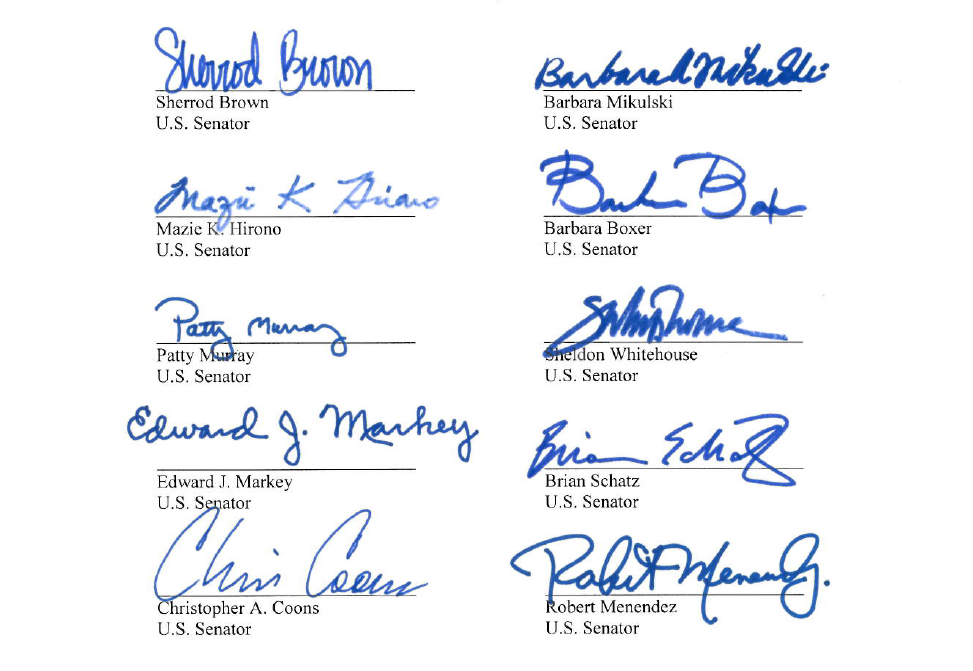 Sherrod Brown Barbara A Mikulski
Sherrod Brown Barbara Mikulski
U.S. Senator U.S. Senator
Mazie K Hirono Barbara Boxer
Mazie K. Hirono Barbara Boxer
U.S. Senator U.S. Senator
Patty Murray SWhitehouse
Patty Murray Sheldon Whitehouse
U.S. Senator U.S. Senator
Edward J. Markey Brian Schatz
Edward J. Markey Brian Schatz
U.S. Senator U.S. Senator
Chris Coons Robert Menendez
Christopher A. Coons Robert Menendez
U.S. Senator U.S. Senator